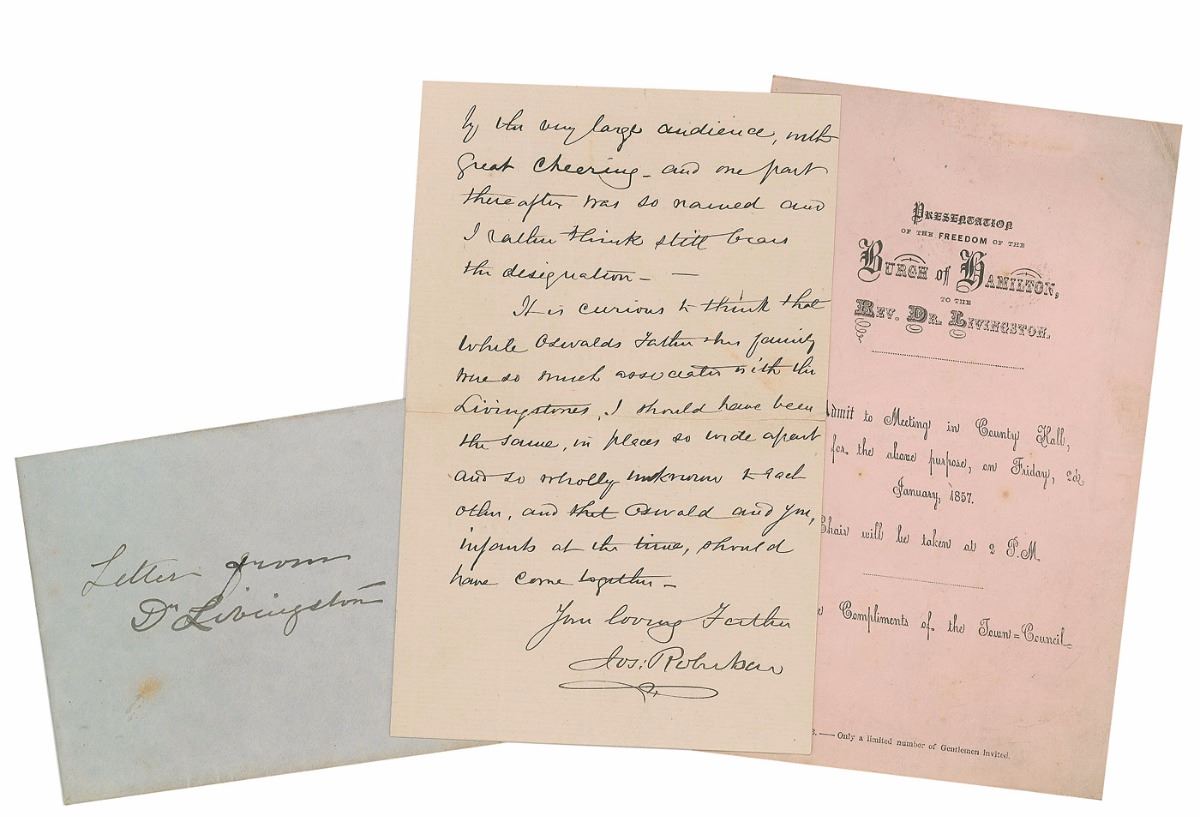 Letter from
Dr Livingston
by the very large audience, with
great cheering - and one part
thereafter was so named and
I rather think still bears
the designation - —
It is curious to think that
while Oswalds Father & his family
were so much associated with the
Livingstones, I should have been
the same, in places so wide apart
and so wholly unknown to each
other, and that Oswald and you,
infants at the time, should
have come together -
Your loving Father
Jos: Robertson
PRESENTATION
OF THE FREEDOM OF THE
BURGH of HAMILTON,
TO THE
REV. DR. LIVINGSTON.
Admit to Meeting in County Hall,
for the above purpose, on Friday, 2d
January, 1857.
Chair will be taken at 2 P.M.
Compliments of the Town=Council.
— Only a limited number of Gentlemen Invited.